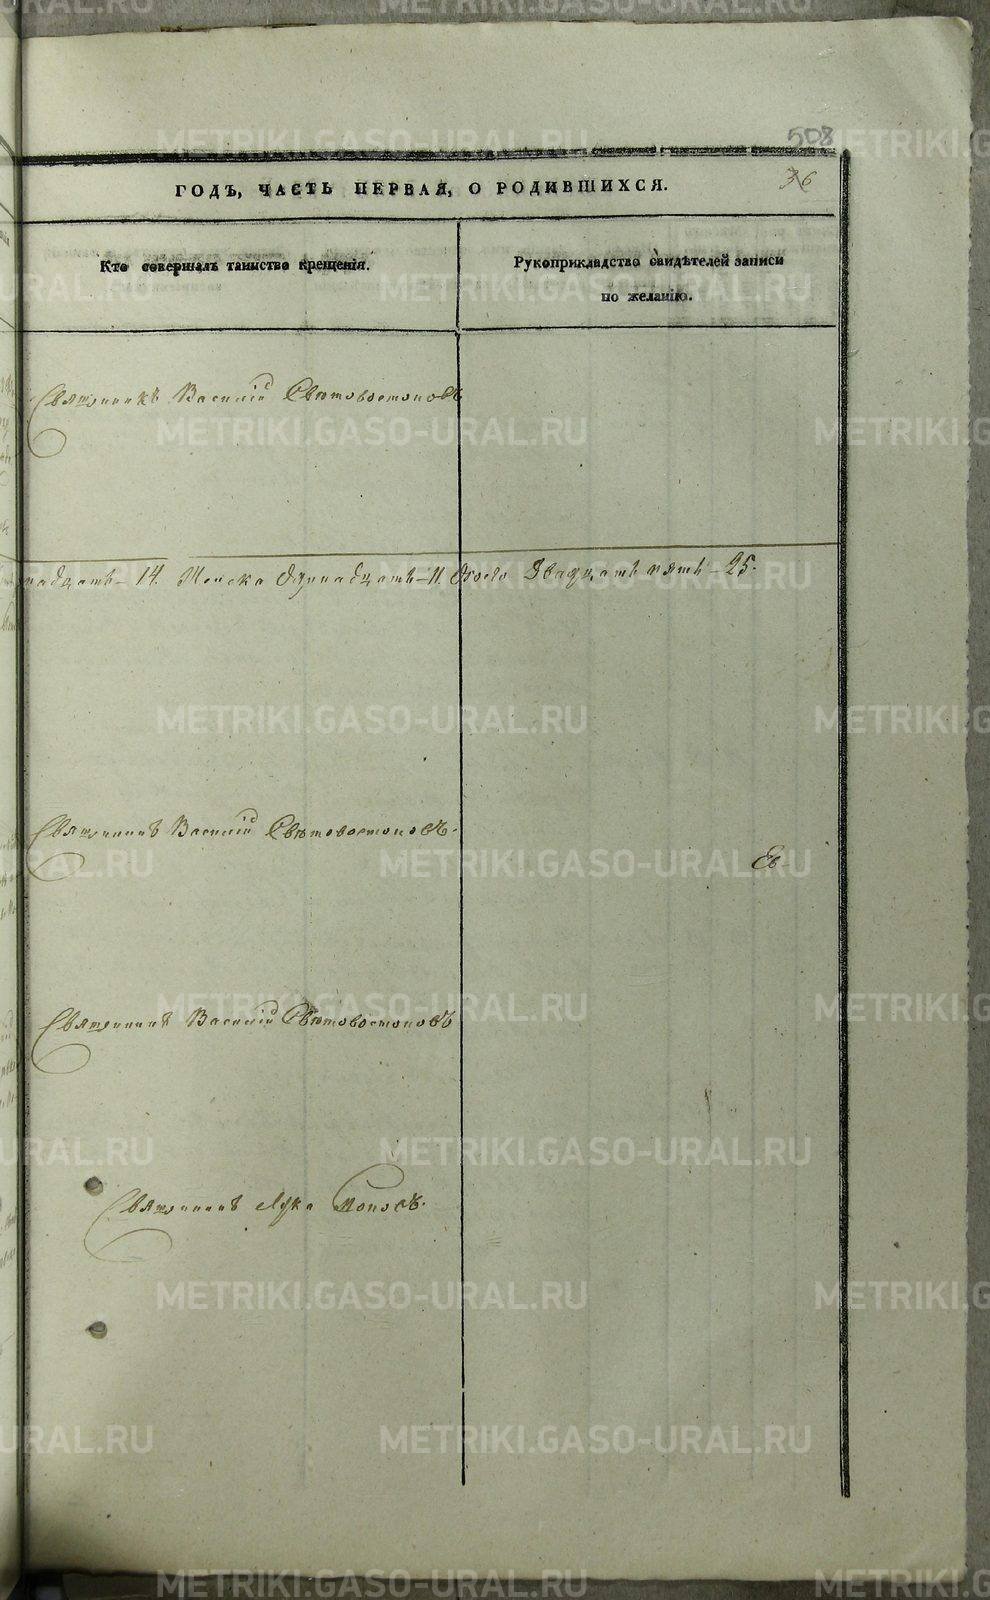 508
36
ГОДЪ, ЧАСТЬ ПЕРВАЯ, О РОДИВШИХСЯ.
Кто совершалъ таинство крещенія.
Рукоприкладство свидѣтелей записи
по желанію.
Священникъ Василій Свѣтовостоковъ
надцать – 14. Женска Одиннадцать – 11. Обоего Двадцать пять – 25.
Священникъ Василій Свѣтовостоковъ.
Священникъ Василій Свѣтовостоковъ
Священникъ Лука Поповъ.
METRIKI.GASO-URAL.RU